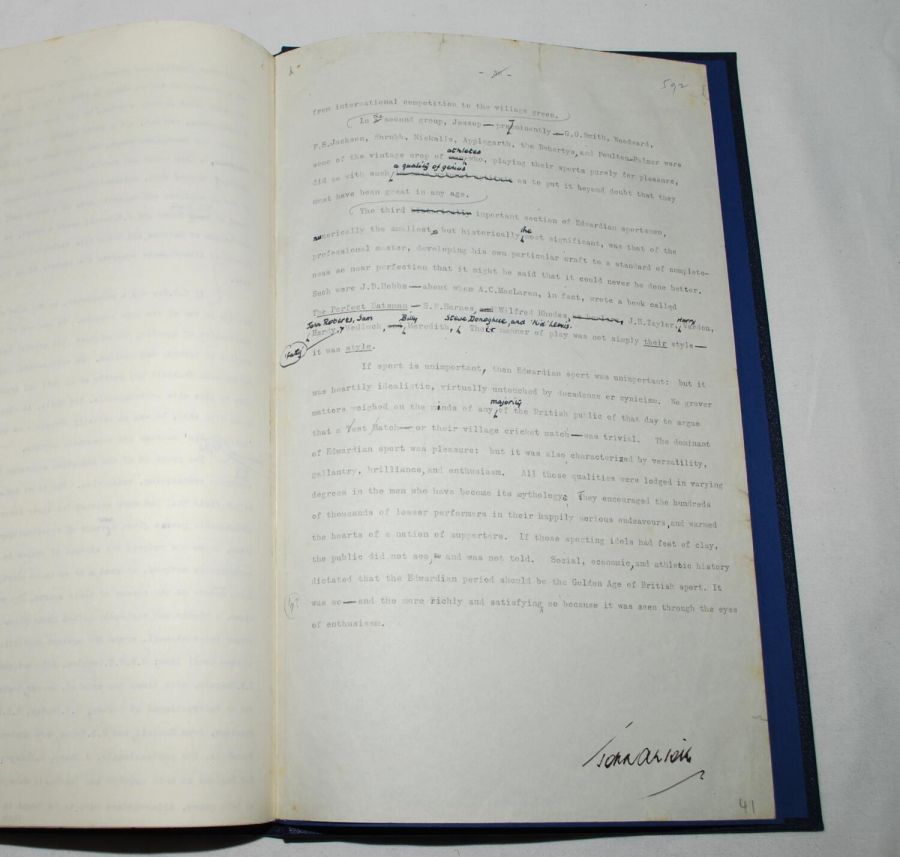 592
- 30 -
from international competition to the village green.
In the second group, Jessop—preeminently—G.O.Smith, Woodward,
F.S.Jackson, Shrubb, Nickalls, Applegarth, the Dohertys, and Poulton-Palmer were
athletes
some of the vintage crop of who, playing their sports purely for pleasure,
a quality of genius
did so with such as to put it beyond doubt that they
must have been great in any age.
The third important section of Edwardian sportsmen,
the
numerically the smallest, but historically most significant, was that of the
professional master, developing his own particular craft to a standard of complete-
ness so near perfection that it might be said that it could never be done better.
Such were J.B.Hobbs—about whom A.C.MacLaren, in fact, wrote a book called
The Perfect Batsman—S.F.Barnes, and Wilfred Rhodes, J.H.Taylor, Harry Vardon,
John Roberts, Sam Billy Steve Donoghue, and 'Kid' Lewis.
Hardy, Wedlock, and Meredith, Their manner of play was not simply their style—
it was style.
If sport is unimportant, then Edwardian sport was unimportant: but it
was heartily idealistic, virtually untouched by decadence or cynicism. No graver
majority
matters weighed on the minds of any of the British public of that day to argue
that a Test Match—or their village cricket match—was trivial. The dominant
of Edwardian sport was pleasure: but it was also characterized by versatility,
gallantry, brilliance, and enthusiasm. All those qualities were lodged in varying
degrees in the men who have become its mythology: They encouraged the hundreds
of thousands of lesser performers in their happily serious endeavours, and warmed
the hearts of a nation of supporters. If those sporting idols had feet of clay,
the public did not see, and was not told. Social, economic, and athletic history
dictated that the Edwardian period should be the Golden Age of British sport. It
was so—and the more richly and satisfying so because it was seen through the eyes
of enthusiasm.
John Arlott
41